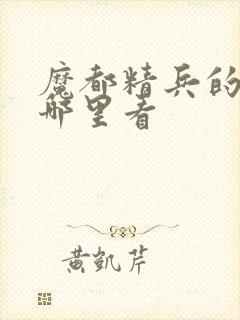 魔都精兵的
哪里看
黄凯芹